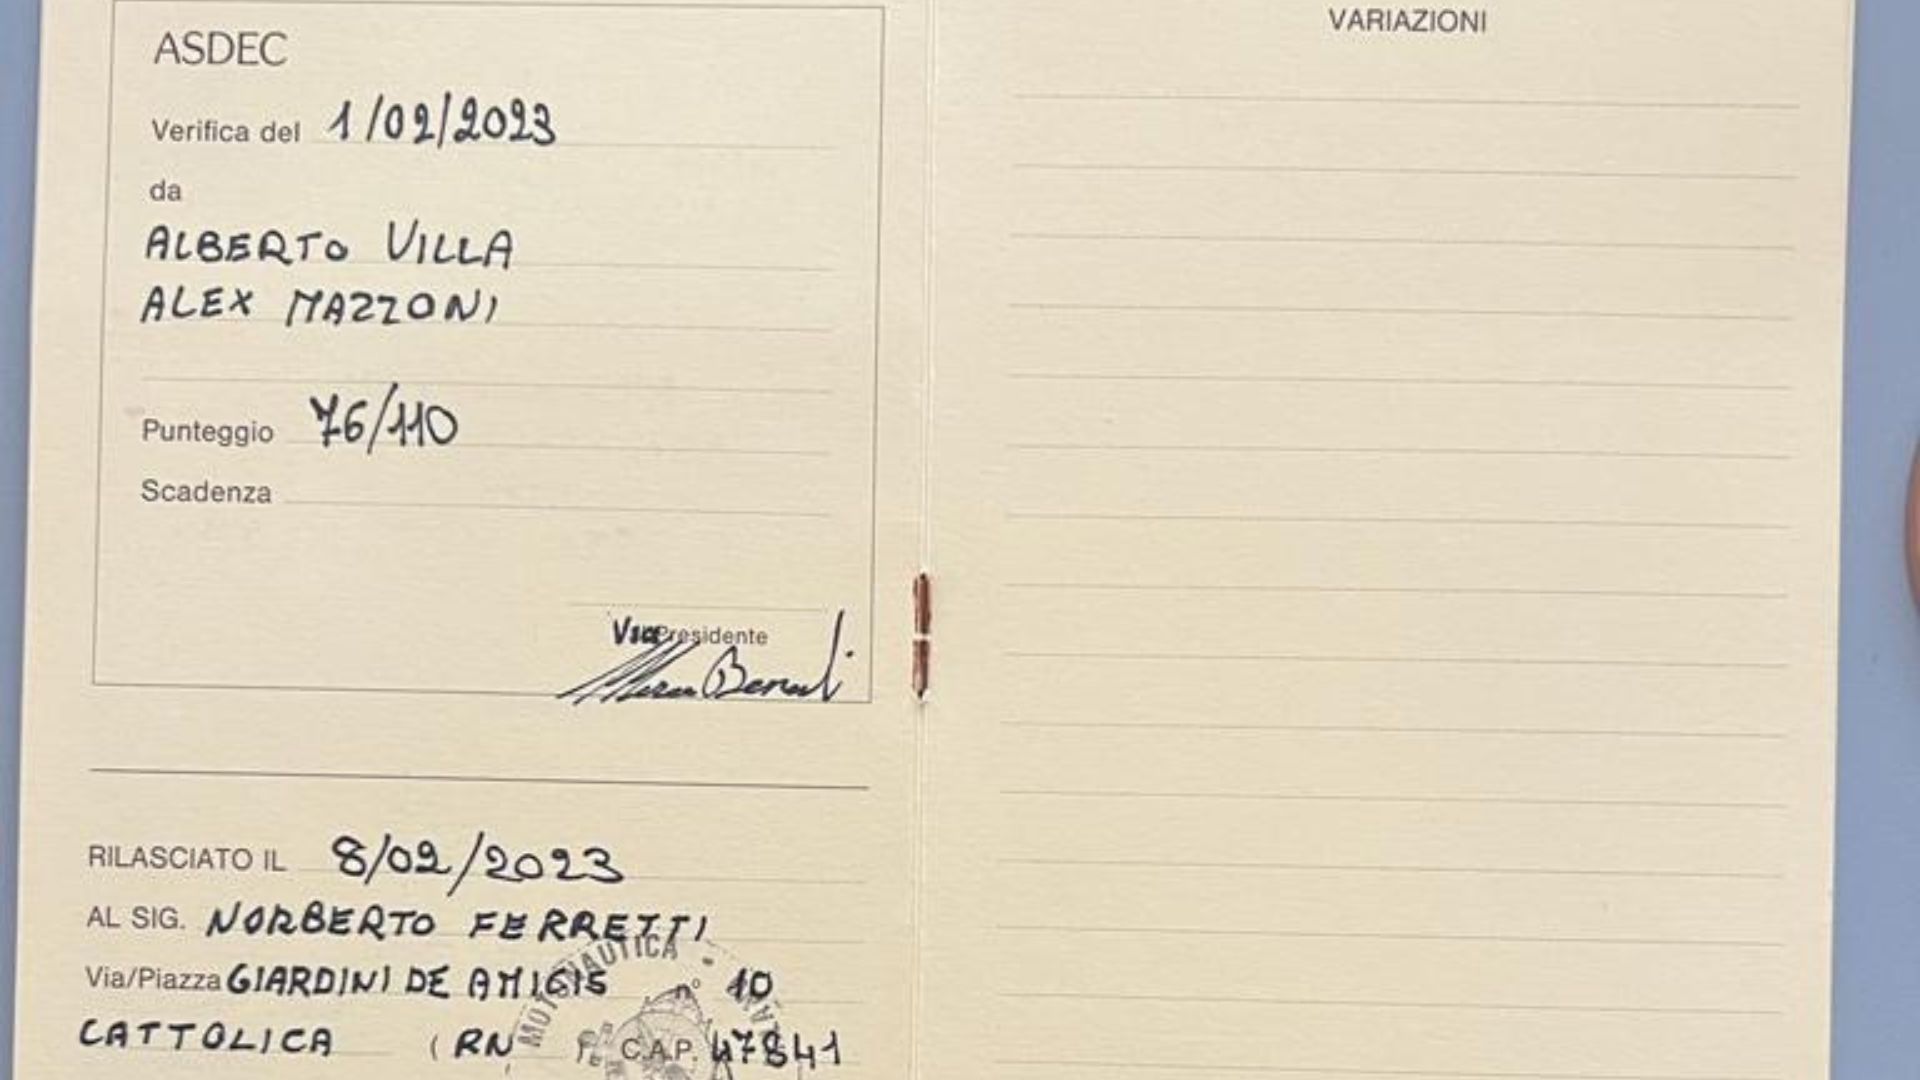 ASDEC
Verifica del 1/02/2023
da
ALBERTO VILLA
ALEX MAZZONI
Punteggio 76/110
Scadenza
Vice Presidente
RILASCIATO IL 8/02/2023
AL SIG. NORBERTO FERRETTI
Via/Piazza GIARDINI DE AMICIS n° 10
CATTOLICA (RN C.A.P. 47841
MOTONAUTICA
VARIAZIONI